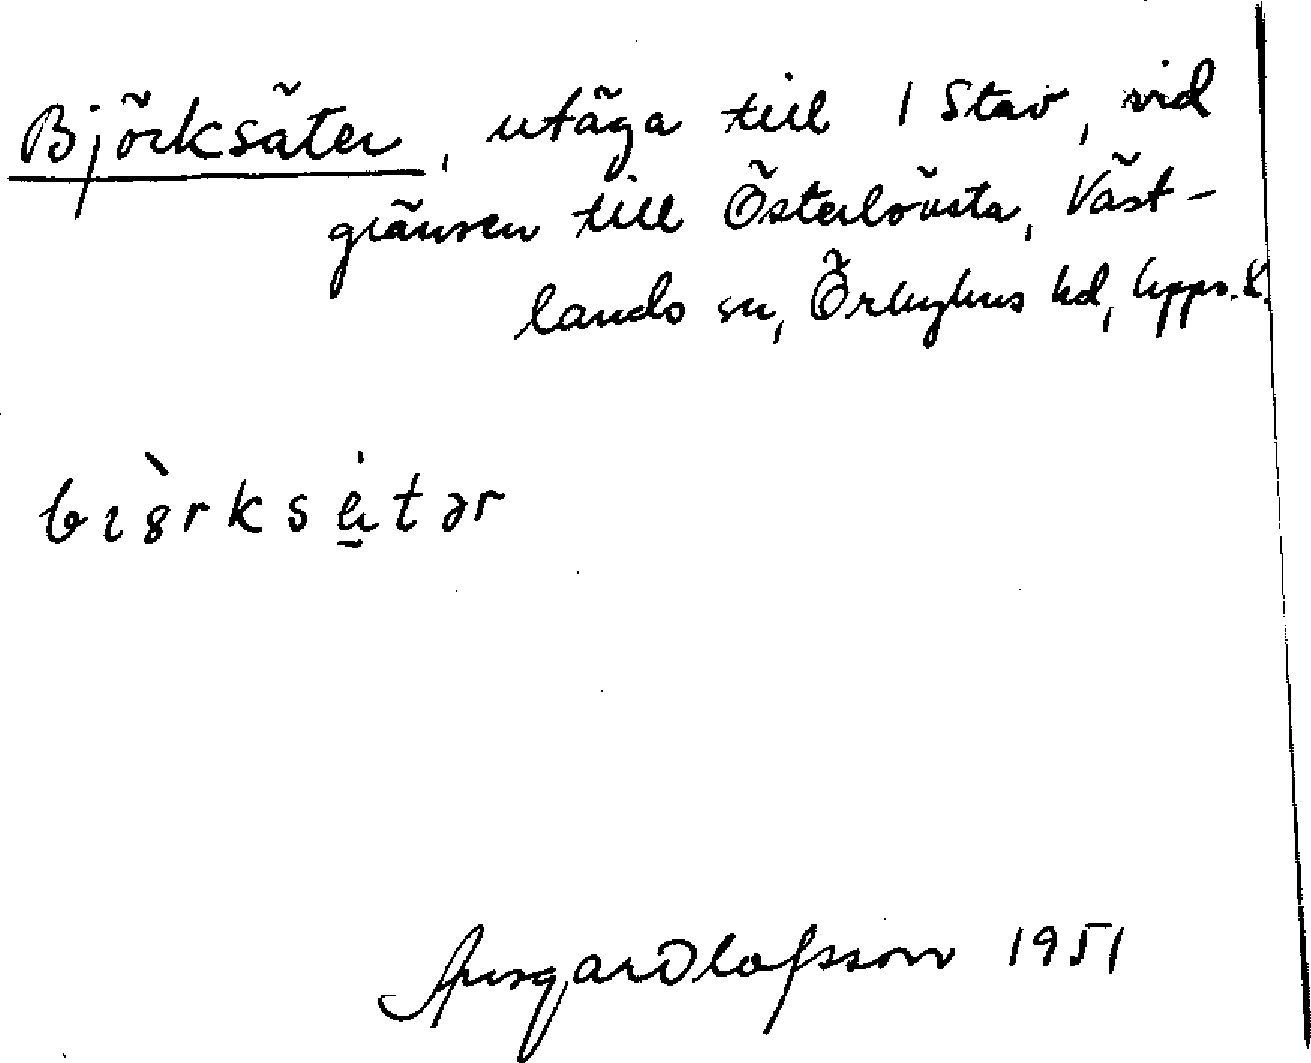 Björksäter, utäga till 1 Stav, vid
gränsen till Österlövsta, Väst-
lands sn, Örbyhus hd, Upps. l.
bɪɞ̀rksɛ̣́tər
Ansgar Olofsson 1951